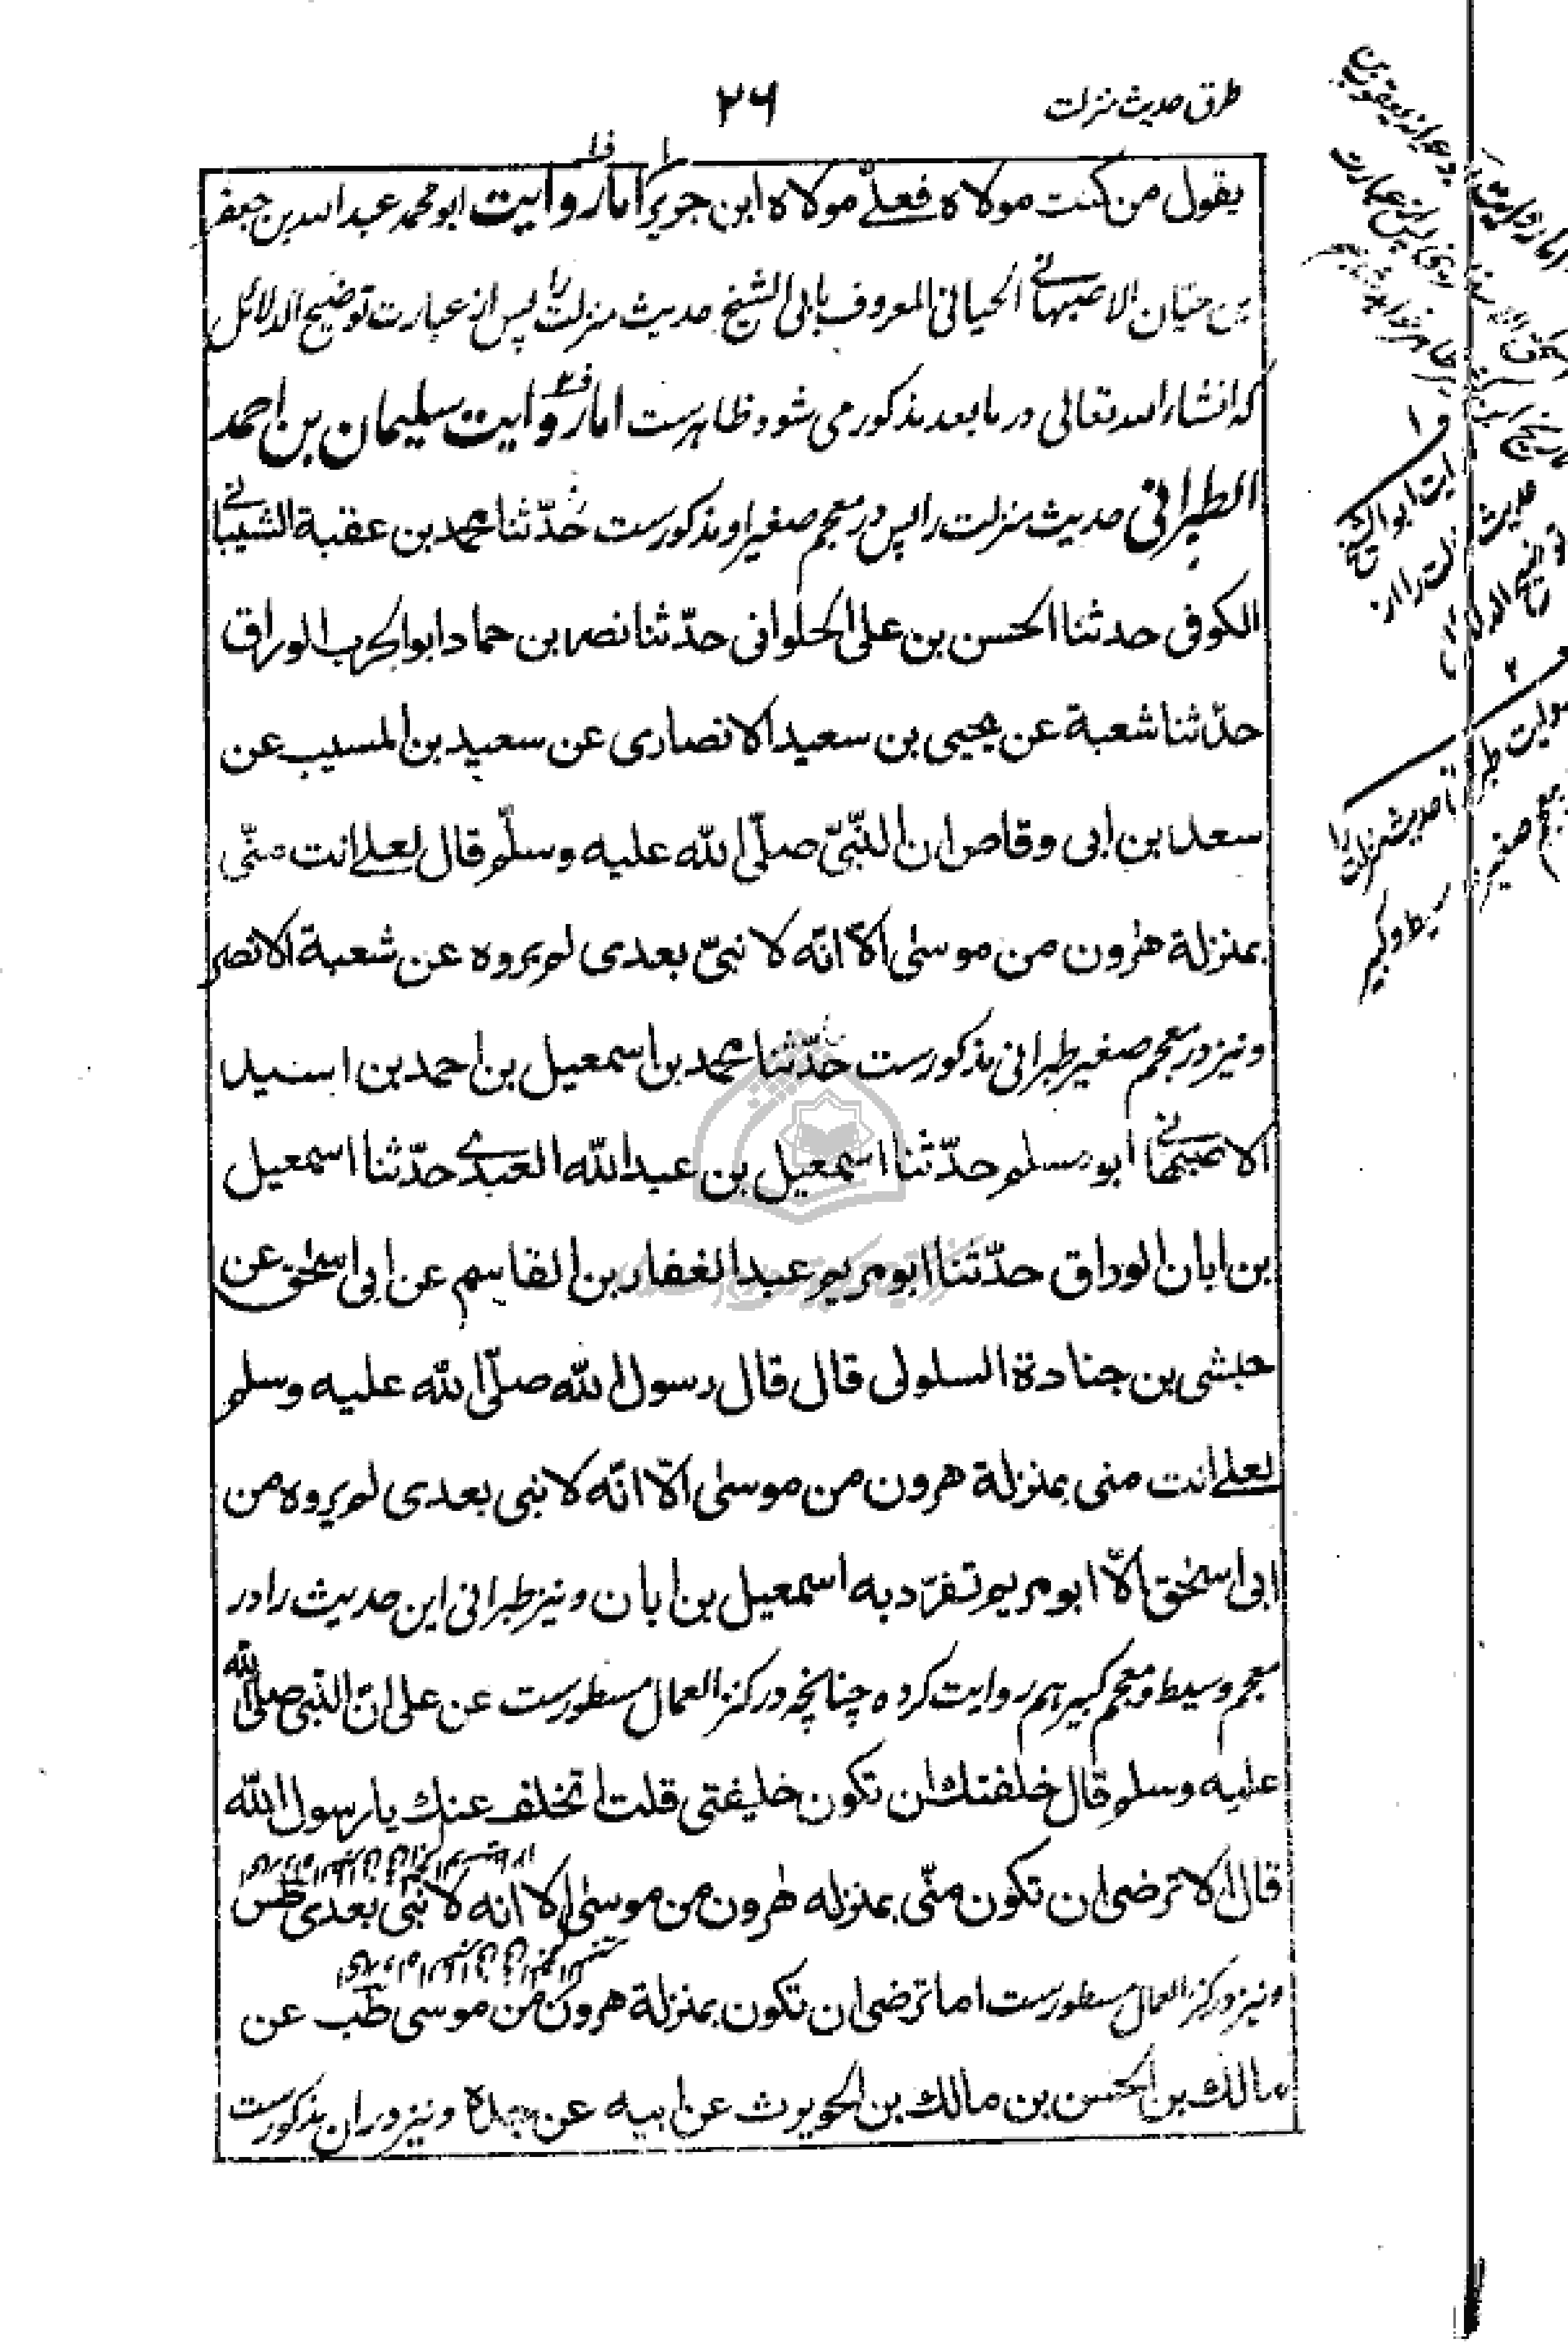 طرق حدیث منزلت
۲۶
یقول من کنت مولاه فعلیّ مولاه ابن جریر اما روایت ابو محمد عبد الله بن جعفر
بن حیّان الاصبهانے الحیانی المعروف بابی الشیخ حدیث منزلت را پس از عبارت توضیح الدلائل
که انشاء الله تعالی در ما بعد مذکور می شود ظاهرست اما روایت سلیمان بن احمد
الطبرانی حدیث منزلت را پس در معجم صغیر او مذکورست حدّثنا محمد بن عقبة الشیبانے
الکوفی حدثنا الحسن بن علی الحلوانی حدّثنا نصر بن حماد ابو الحرب الوراق
حدّثنا شعبة عن یحیی بن سعید الانصاری عن سعید بن المسیب عن
سعد بن ابی وقاص ان النّبیّ صلّی الله علیه وسلّم قال لعلے انت منّی
بمنزلة هٰرون من موسٰی الّا انّه لا نبیّ بعدی لم یروه عن شعبة الا نصر
و نیز در معجم صغیر طبرانی مذکورست حدّثنا محمد بن اسمعیل بن احمد بن اسید
الاصبهانے ابو مسلم حدّثنا اسمعیل بن عبد الله العبدے حدّثنا اسمعیل
بن ابان الوراق حدّثنا ابو مریم عبد الغفار بن القاسم عن ابی اسحٰق عن
حبشی بن جنادة السلولی قال قال رسول الله صلّی الله علیه وسلم
لعلے انت منی بمنزلة هرون من موسٰی الّا انّه لا نبی بعدی لم یروه من
ابی اسحٰق الّا ابو مریم تفرّد به اسمعیل بن ابان و نیز طبرانی این حدیث را در
معجم وسیط و معجم کبیر هم روایت کرده چنانچه در کنز العمال مسطورست عن علی انّ النّبی صلی الله
علیه وسلم قال خلفتك ان تکون خلیفتی قلت اتخلف عنك یا رسول الله
قال الا ترضی ان تکون منّی بمنزله هٰرون من موسٰی الا انه لا نبی بعدی طس
و نیز در کنز العمال مسطورست اما ترضی ان تکون بمنزلة هرون من موسی طب عن
مالك بن الحسن بن مالك بن الحویرث عن ابیه عن جده و نیز در ان مذکورست